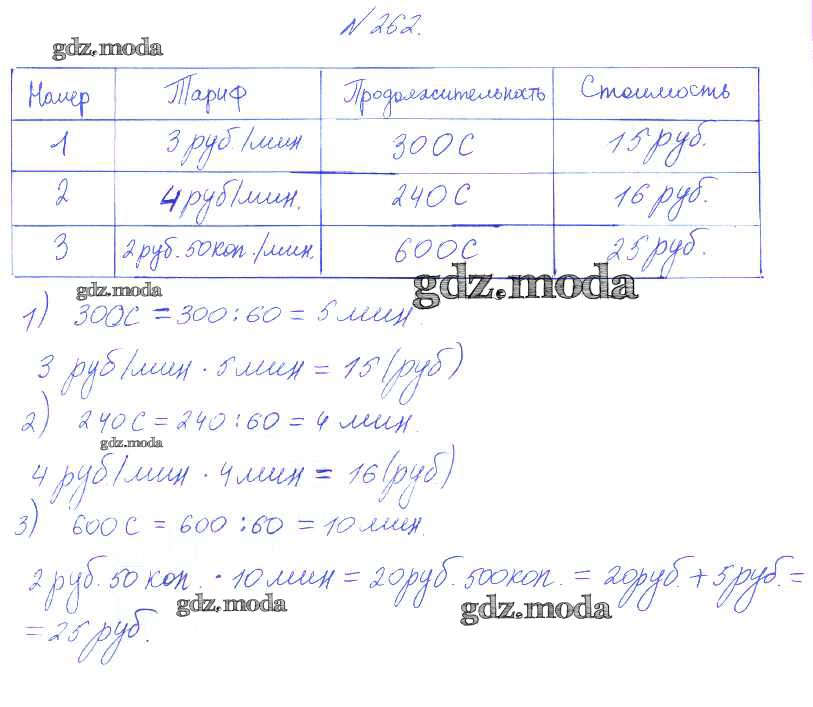 №262.
gdz.moda
Номер Тариф Продолжительность Стоимость
1 3 руб./мин 300С 15 руб.
2 4 руб/мин. 240С 16 руб.
3 2 руб. 50 коп./мин. 600С 25 руб.
gdz.moda gdz.moda
1) 300С = 300 : 60 = 5 мин.
3 руб/мин · 5 мин = 15 (руб)
2) 240С = 240 : 60 = 4 мин.
gdz.moda
4 руб/мин · 4 мин = 16 (руб)
3) 600С = 600 : 60 = 10 мин.
2 руб. 50 коп. · 10 мин = 20 руб. 500 коп. = 20 руб. + 5 руб. =
gdz.moda gdz.moda
= 25 руб.